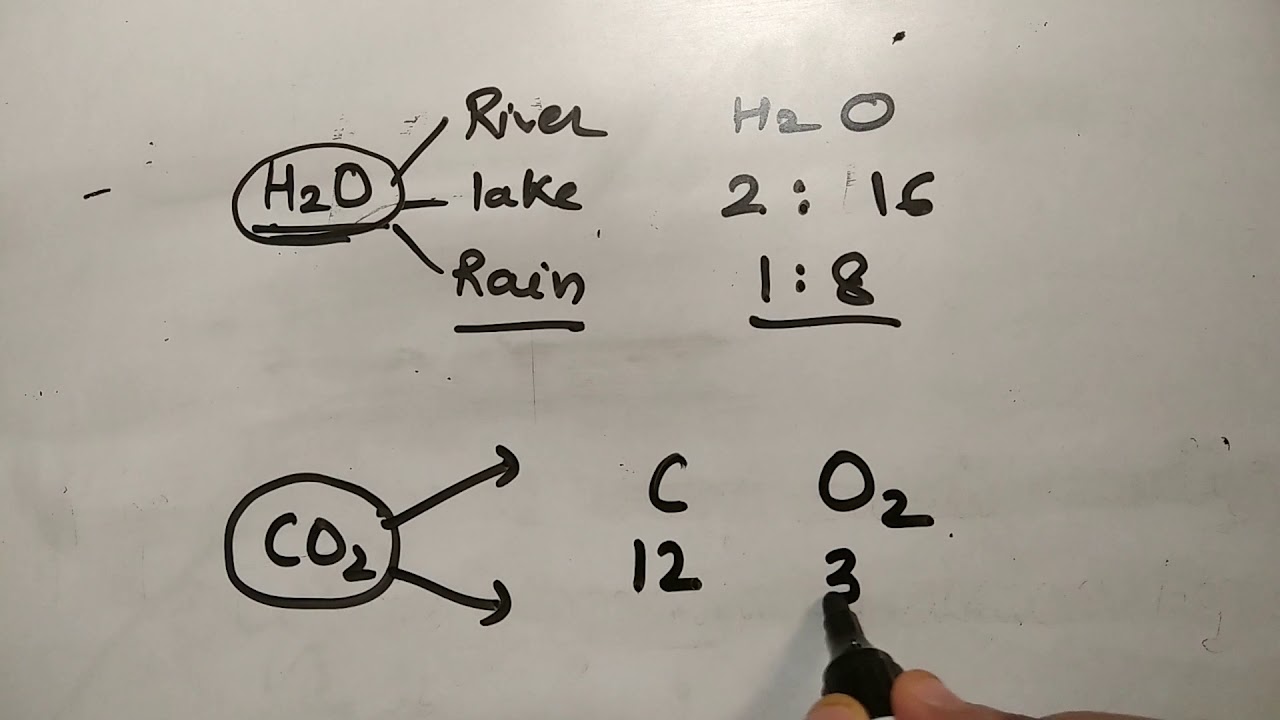 River
H₂O lake
Rain
H₂O
2 : 16
1 : 8
CO₂
C O₂
12 3